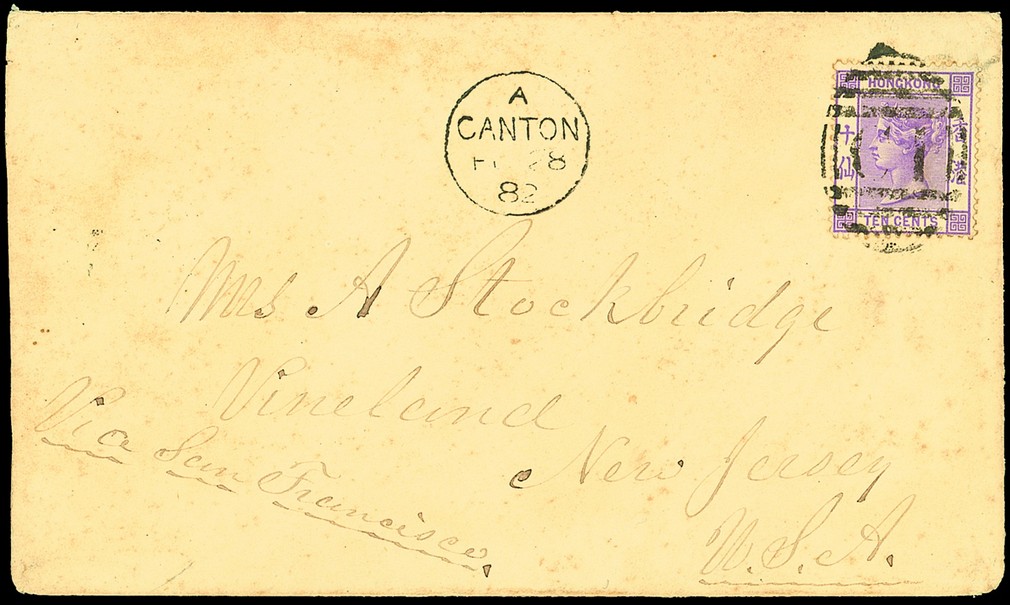 A
CANTON
28
82
HONGKONG
香港
十仙
TEN CENTS
Mrs A Stockbridge
Vineland
New Jersey
U.S.A.
Via San Francisco.